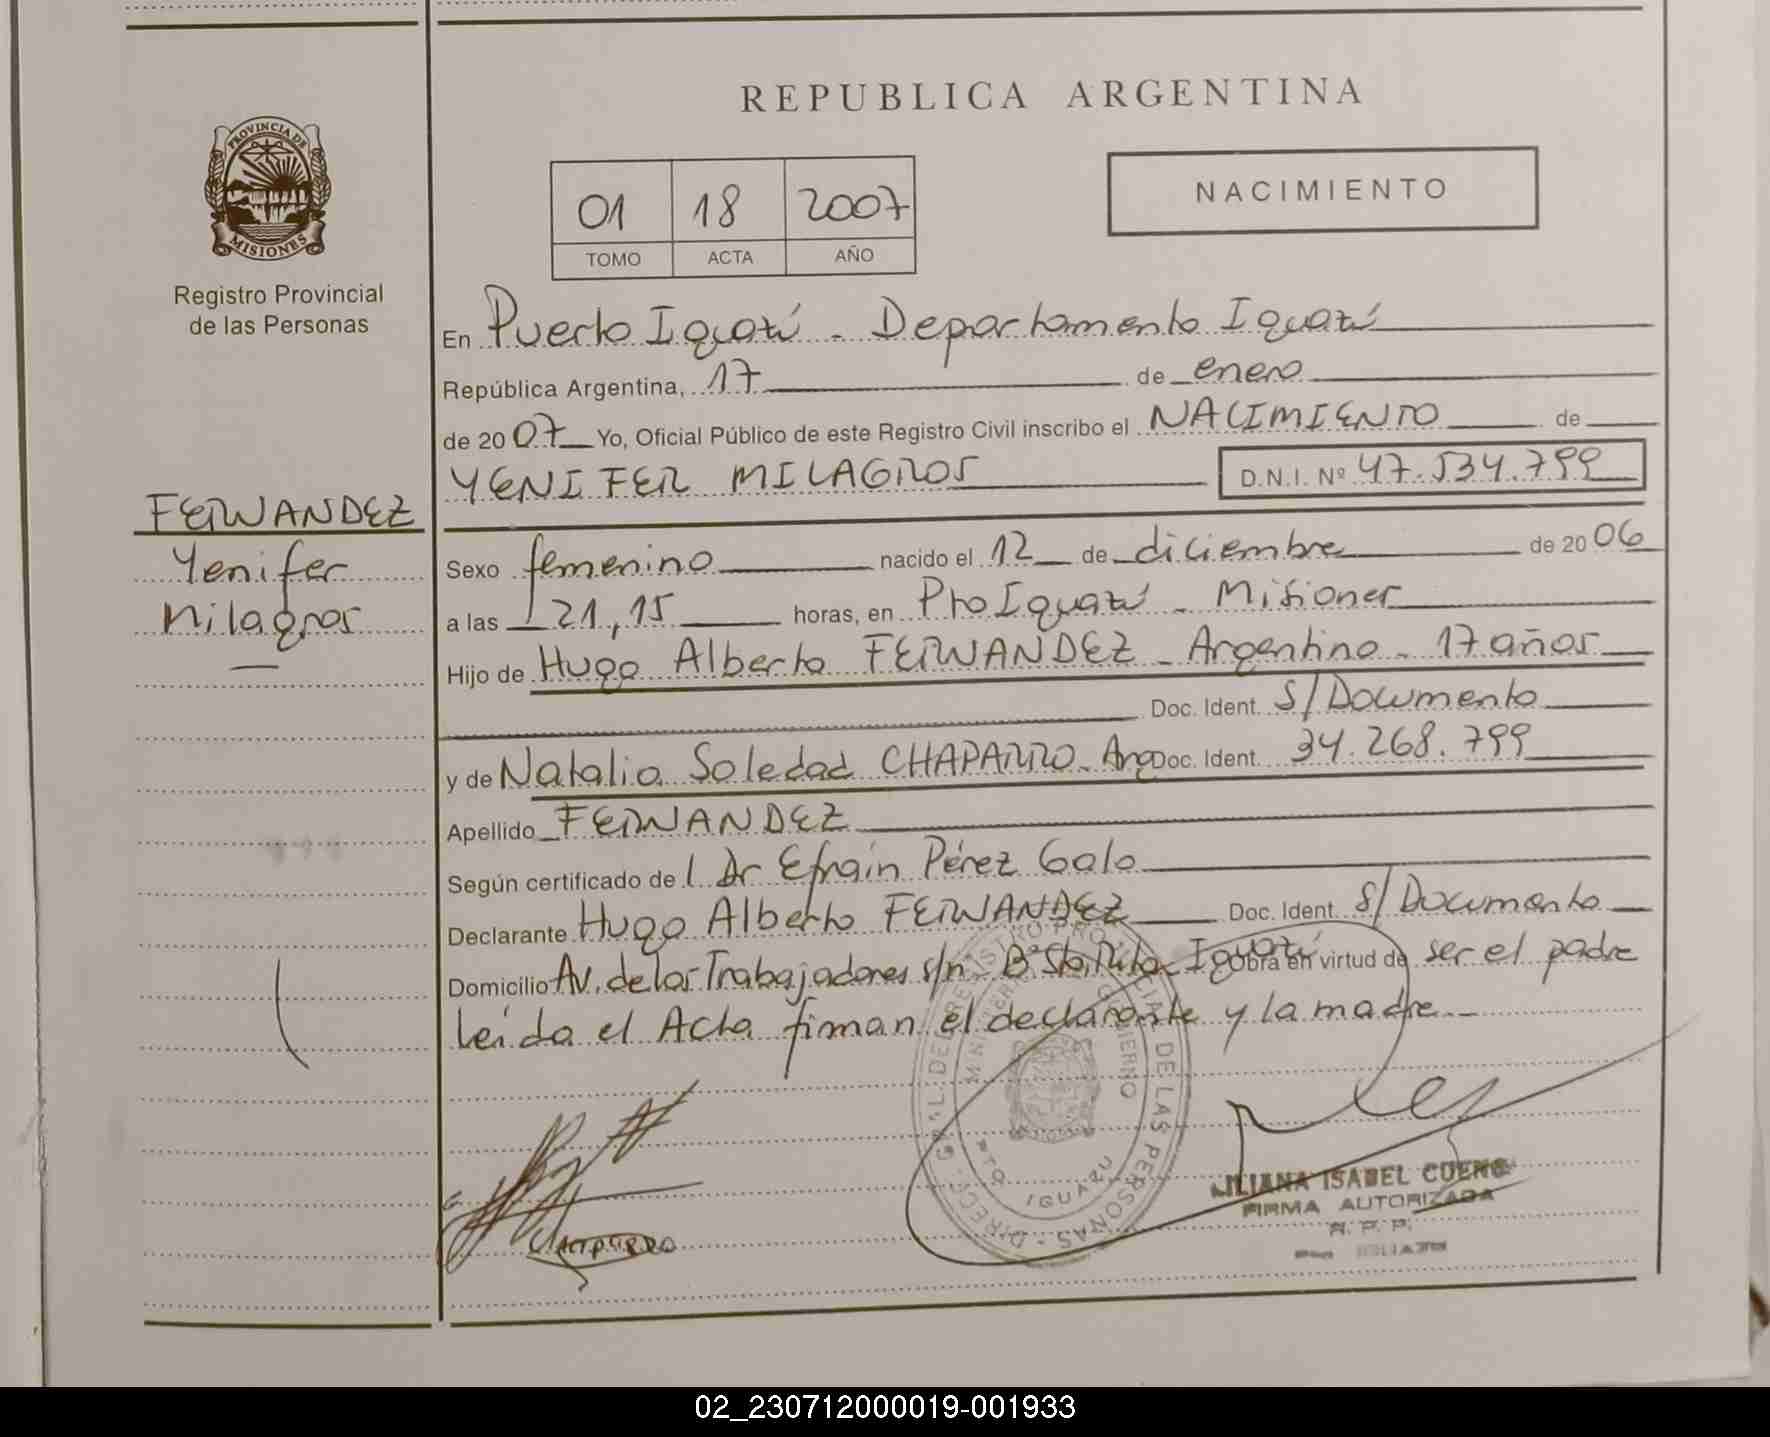 REPUBLICA ARGENTINA
PROVINCIA DE
MISIONES
Registro Provincial
de las Personas
01 18 2007
TOMO ACTA AÑO
NACIMIENTO
En Puerto Iguazú - Departamento Iguazú
República Argentina, 17 de enero
de 2007 Yo, Oficial Público de este Registro Civil inscribo el NACIMIENTO de
YENIFER MILAGROS D.N.I. Nº 47.534.799
FERNANDEZ
Yenifer
Milagros
Sexo femenino nacido el 12 de diciembre de 2006
a las 21,15 horas, en Pto Iguazú - Misiones
Hijo de Hugo Alberto FERNANDEZ - Argentino - 17 años
Doc. Ident. S/Documento
y de Natalia Soledad CHAPARRO - Arg Doc. Ident. 34.268.799
Apellido FERNANDEZ
Según certificado de l Dr Efraín Pérez Galo
Declarante Hugo Alberto FERNANDEZ Doc. Ident. S/Documento
Domicilio Av. de los Trabajadores s/n - Bº Sta. Rita - Iguazú Obra en virtud de ser el padre
Leída el Acta firman el declarante y la madre -
DIRECC. GRAL. DEL REGISTRO PROVINCIAL DE LAS PERSONAS
GOBIERNO
PTO IGUAZU
CHAPARRO
LILIANA ISABEL
FIRMA AUTORIZADA
R. P. P.
IGUAZU
02_230712000019-001933